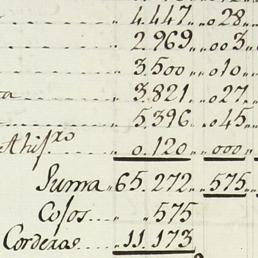 4.447 „ 028
2.969 „ 003
3.500 „ 010
a 3.821 „ 027
5.396 „ 045
0.120 „ 000
Suma 65.272 „ 575
Cosos 575
Corderas 11.173